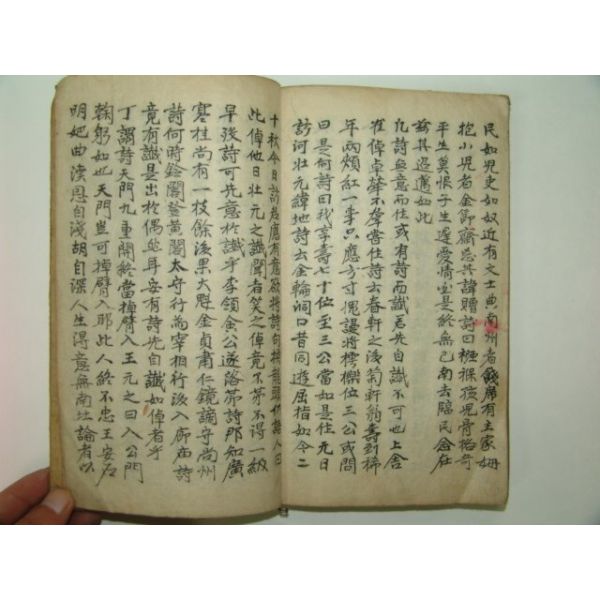 民如兒吏如奴近有文士典南州者餞席有主家姆
抱小兒者金節齋忘其諱贈詩曰襁褓孩兒骨格奇
平生莫恨子生遲愛情空是終無已南去臨民念在
玆其迃邁如此
凡詩無意而仕或有詩而讖若先自讖不可也上舍
崔倬卓犖不羣嘗仕詩云春軒之淺菊軒

年兩頰紅一李只應方寸愧謾將樗櫟位三公或問
曰是何詩曰我享壽七十位至三公當如是仕元日
訪河壯元緯地詩云金輪洞口昔同遊屈指如今二
十秋今日訪君應有意欲將詩句挿龍頭作詩人曰
此倬他日壯元之讖聞者笑之倬竟不第不得一級
早發詩可先意於讖乎李領僉公遂落第詩那知廣
寒桂尚有一枝餘後果大魁金貞肅仁鏡謫守尚州
詩何時鈴閣登黃閣太守行為宰相行後入廊庙詩
竟有讖是出於偶然耳安有詩先自讖如倬者乎
丁謂詩天門九重開終當掉臂入王元之曰入公門
鞠躬如也天門豈可掉臂入耶此人終不忠王安石
明妃曲漢恩自淺胡自深人生得意無南北論者以